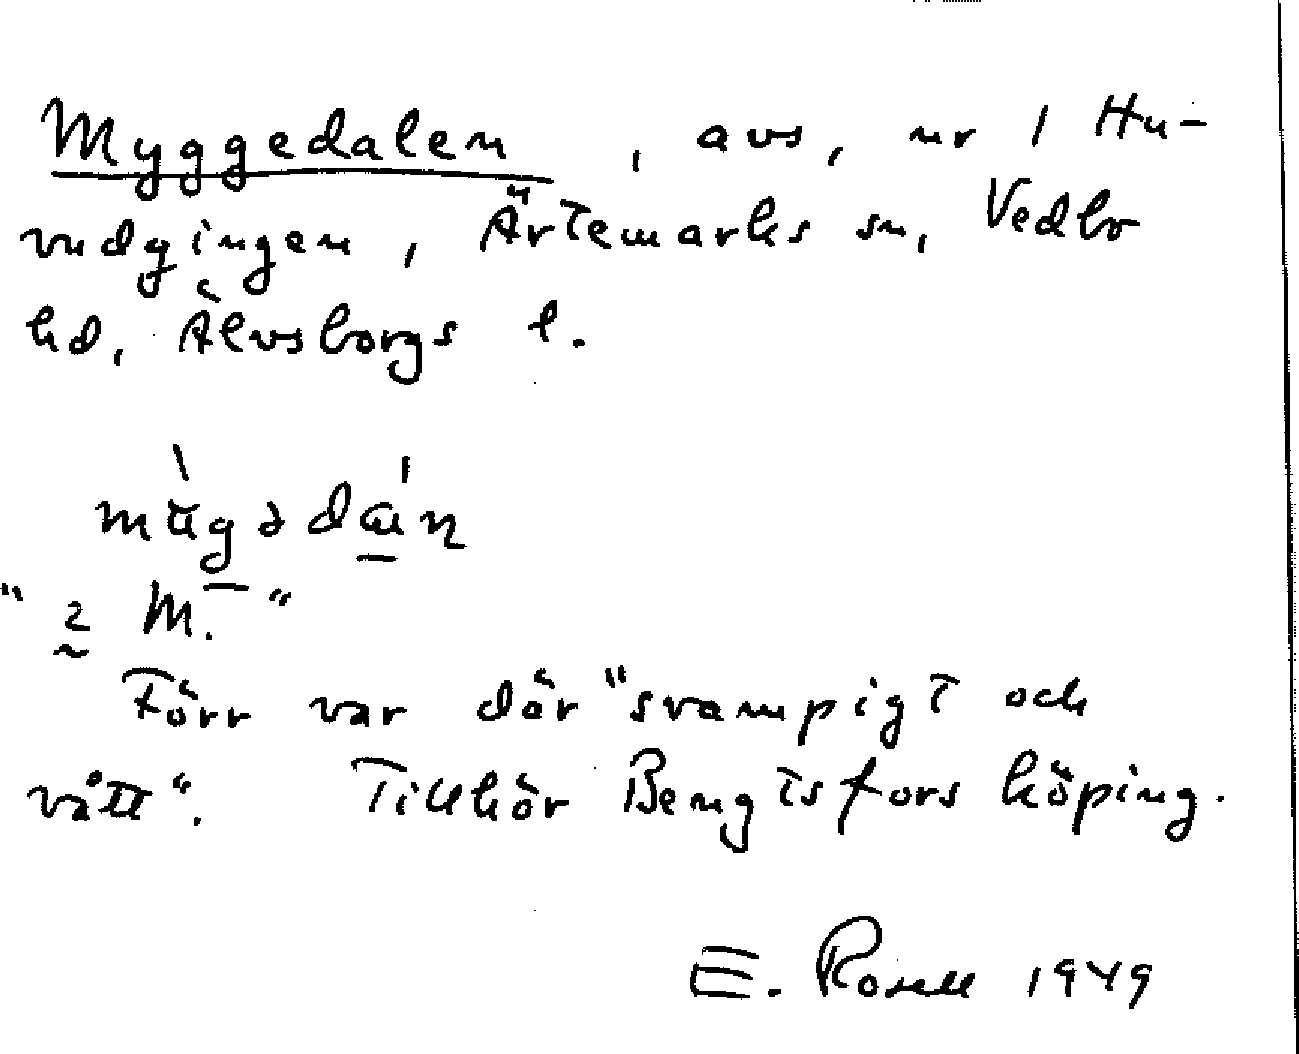 Myggedalen, avs, nr 1 Hu-
vudgingen, Ärtemarks sn, Vedbo
hd, Älvsborgs l.
" M. "
Förr var där "svampigt och
vått". Tillhör Bengtsfors köping.
E. Rosell 1949